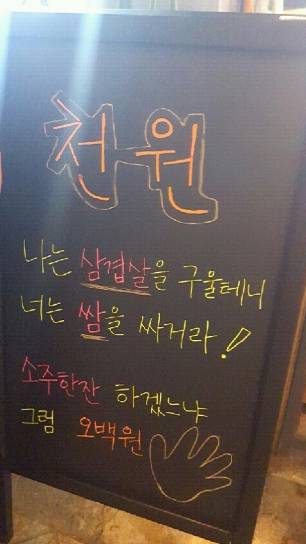 천원
나는 삼겹살을 구울테니
너는 쌈을 싸거라!
소주한잔 하겠느냐
그럼 오백원